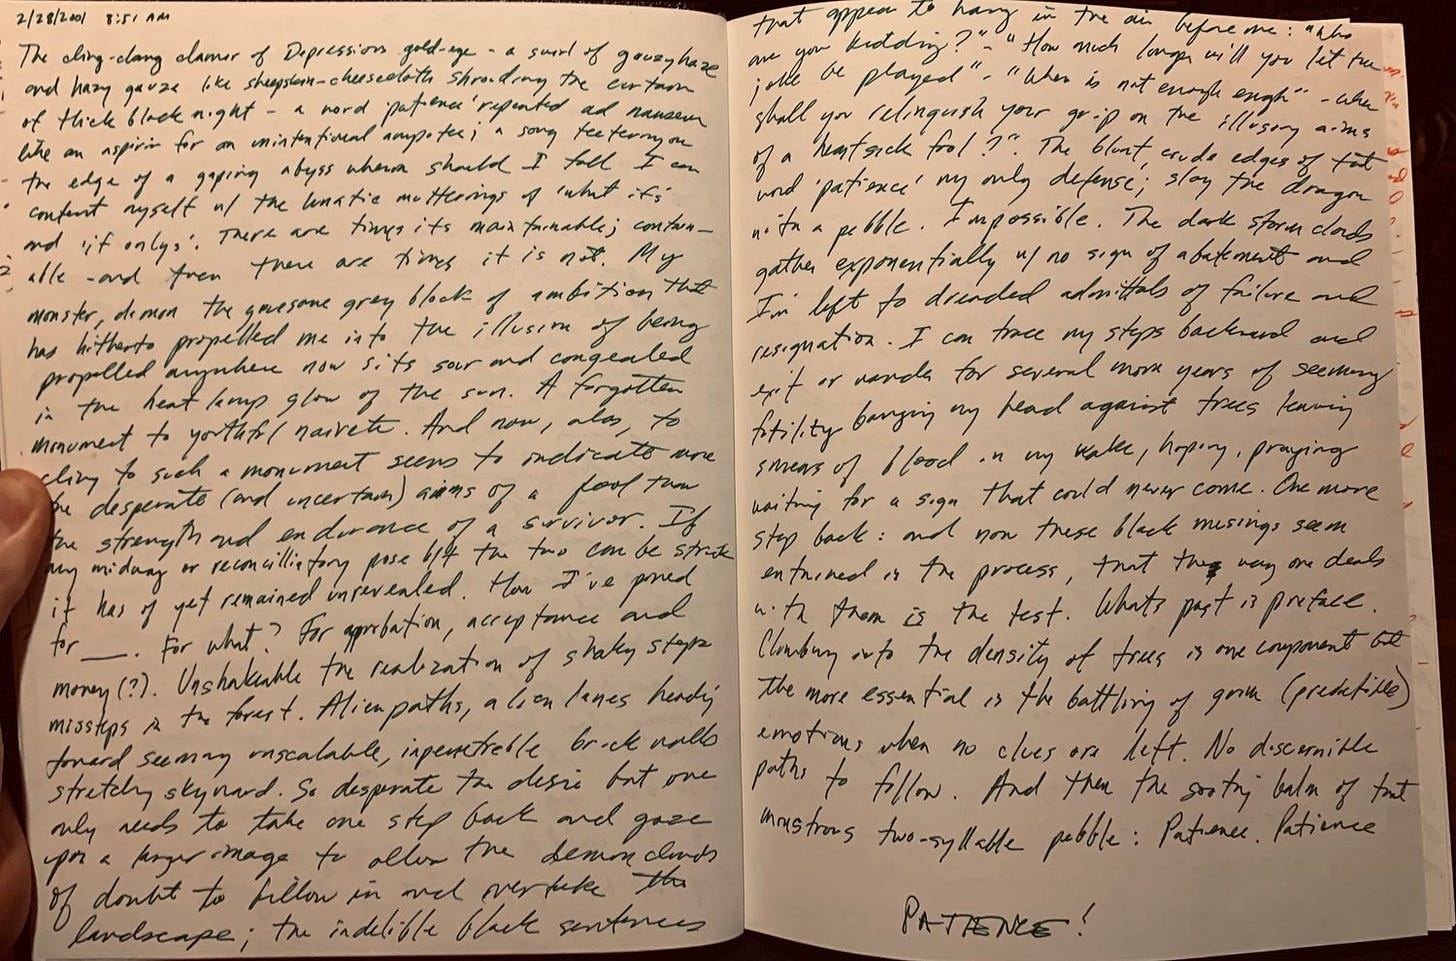 2/28/2001 8:51 AM
The cling-clang clamor of Depressions gold-eye - a swirl of gauzy haze
and hazy gauze like sheepskin-cheesecloth shrouding the curtain
of thick black night - a word 'patience' repeated ad nauseum
like an aspirin for an unintentional amputee; a song teetering on
the edge of a gaping abyss wherein should I fall I can
content myself w/ the lunatic mutterings of 'what if's'
and 'if onlys'. There are times its maintainable; contain-
able - and then there are times it is not. My
monster, demon the gruesome grey block of ambition that
has hitherto propelled me into the illusion of being
propelled anywhere now sits sour and congealed
in the heat lamp glow of the sun. A forgotten
monument to youthful naivete. And now, alas, to
cling to such a monument seems to indicate more
the desperate (and uncertain) aims of a fool than
the strength and endurance of a survivor. If
any midway or reconcilliatory pose b/t the two can be struck
it has of yet remained unrevealed. How I've pined
for __. For what? For approbation, acceptance and
money (?). Unshakeable the realization of shaky steps
missteps in the forest. Alien paths, alien lanes heading
toward seeming unscalable, inpenetreble brick walls
stretching skyward. So desperate the desire but one
only needs to take one step back and gaze
upon a larger image to allow the demon clouds
of doubt to billow in and overtake the
landscape; the indelible black sentences
that appear to hang in the air before me: "Who
are you kidding?" - "How much longer will you let the
joke be played" - "When is not enough enough" - when
shall you relinquish your grip on the illusory aims
of a heartsick fool?". The blunt, crude edges of that
word 'patience' my only defense; slay the dragon
with a pebble. Impossible. The dark storm clouds
gather exponentially w/ no sign of abatement and
I'm left to dreaded admittals of failure and
resignation. I can trace my steps backward and
exit or wander for several more years of seeming
futility banging my head against trees leaving
smears of blood in my wake, hoping, praying
waiting for a sign that could never come. One more
step back: and now these black musings seem
entwined in the process, that the way one deals
with them is the test. Whats past is preface.
Climbing into the density of trees is one component but
the more essential is the battling of grim (predictible)
emotions when no clues are left. No discernible
paths to follow. And then the sooting balm of that
monstrous two-syllable pebble: Patience. Patience
PATIENCE!